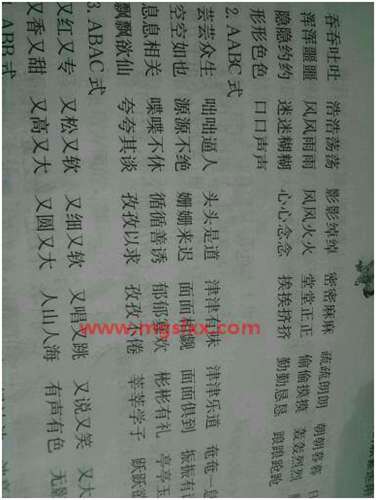 吞吞吐吐 浩浩荡荡 影影绰绰 密密麻麻 疏疏朗朗 朝朝暮暮
浑浑噩噩 风风雨雨 风风火火 堂堂正正 偷偷摸摸 轰轰烈烈
隐隐约约 迷迷糊糊 心心念念 挨挨挤挤 勤勤恳恳 踉踉跄跄
形形色色 口口声声
2. AABC式
芸芸众生 咄咄逼人 头头是道 津津有味 津津乐道 奄奄一
空空如也 源源不绝 姗姗来迟 面面相觑 面面俱到 振振有
息息相关 喋喋不休 循循善诱 郁郁寡欢 彬彬有礼 亭亭玉
飘飘欲仙 夸夸其谈 孜孜以求 孜孜不倦 莘莘学子 跃跃欲
3. ABAC式
又红又专 又松又软 又细又软 又唱又跳 又说又笑 又大
又香又甜 又高又大 又圆又大 人山人海 有声有色 无影
ABB式